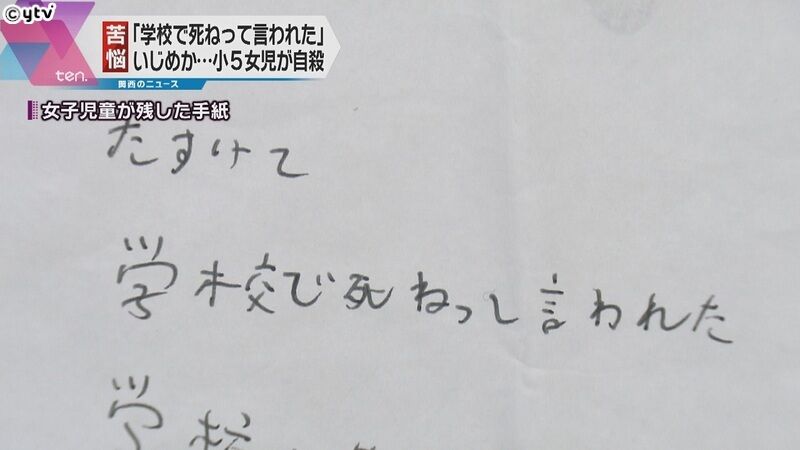 ©ytv
ten.
苦悩
「学校で死ねって言われた」
いじめか…小5女児が自殺
関西のニュース
女子児童が残した手紙
たすけて
学校で死ねって言われた
学校